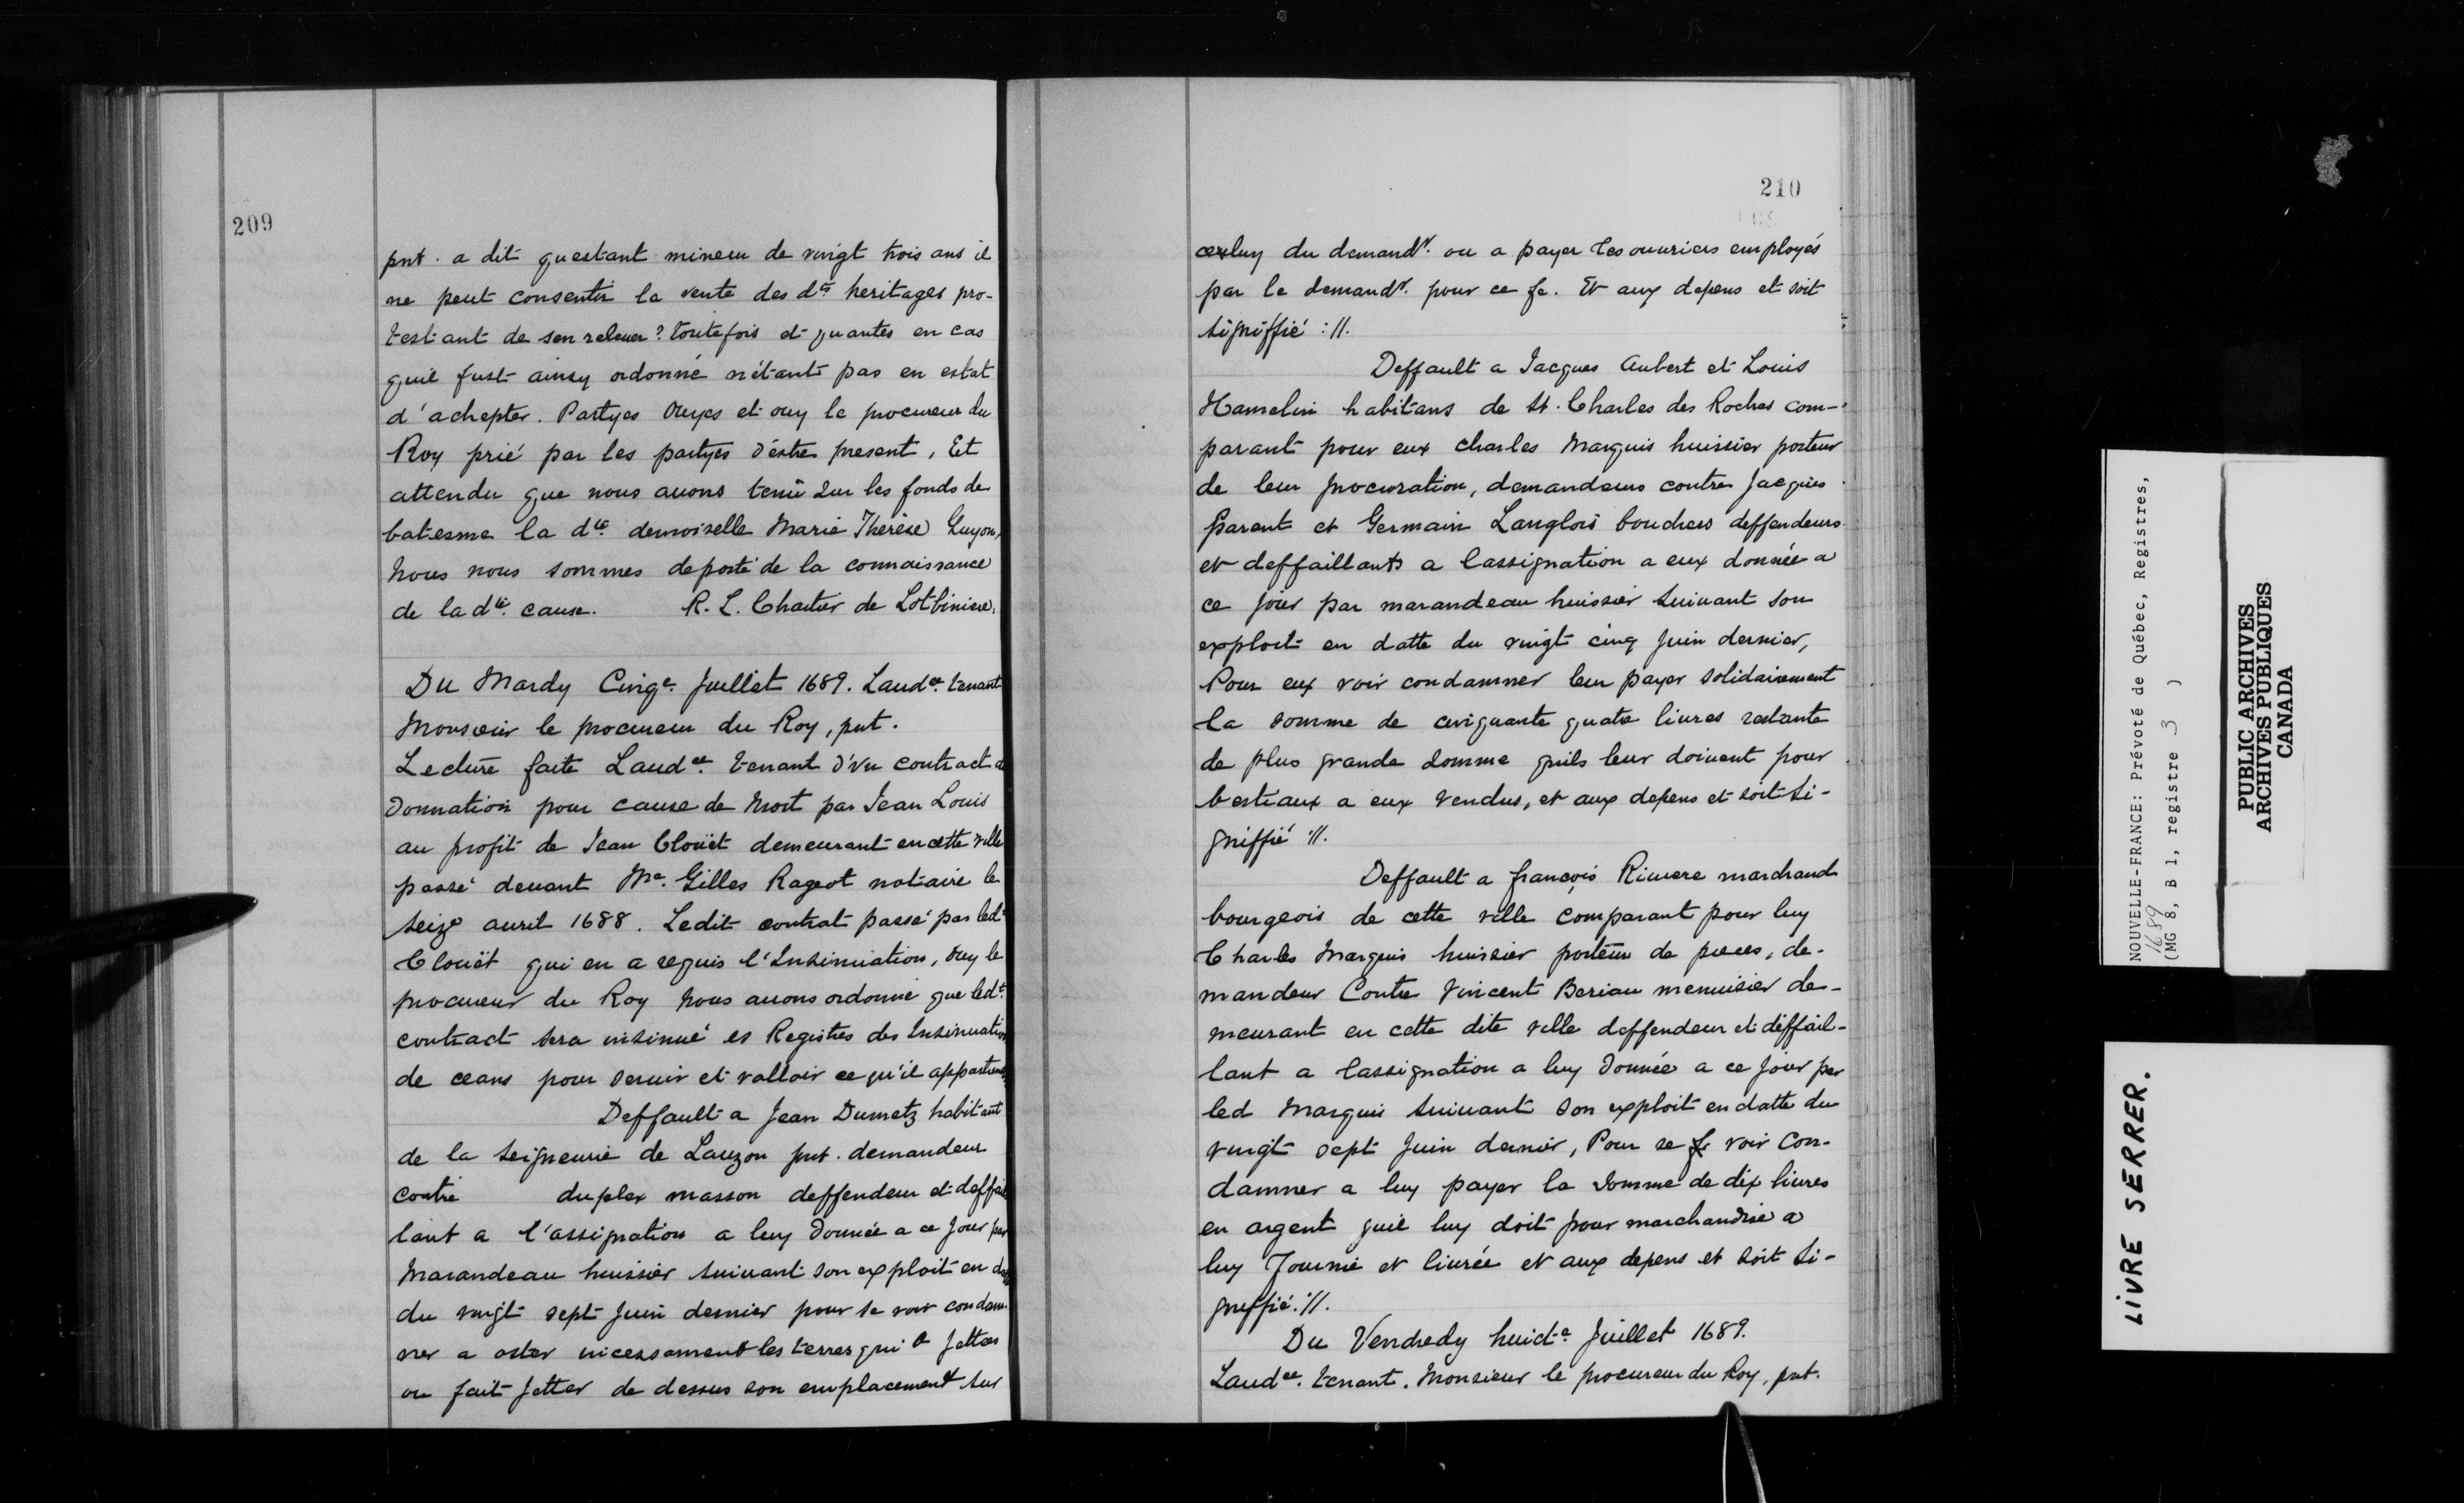 209
pnt. a dit questant mineur de vingt trois ans il
ne peut consentir la vente des dts heritages pro-
testant de sen releuer? toutefois et quantes en cas
quil fust ainsy ordonné nétant pas en estat
d'achepter. Partyes Ouyes et ouy le procureur du
Roy prié par les partyes d'éstre present, Et
attendu que nous auons tenû sur les fonds de
batesme la dte demoiselle Marie Therèse Guyon,
Nous nous sommes deporté de la connaissance
de la dte cause. R. L. Chartier de Lotbiniere,
Du Mardy Cinqe Juillet 1689. Laudce tenant
Monsieur le procureur du Roy, pnt.
Lecture faite Laudce tenant d'vn contract de
donnation pour cause de Mort par Jean Louis
au profit de Jean Cloüet demeurant en cette ville
passé deuant Me. Gilles Rageot notaire le
seize auril 1688. Ledit contrat passé par ledt
Cloüet qui en a requis l'Insinuation, Ouy le
procureur du Roy Nous auons ordonné que ledt
contract sera insinué es Registres des Insinuation
de ceans pour seruir et valloir ce qu'il appartiend
Deffault a Jean Dumetz habitant
de la Seigneurie de Lauzon pnt. demandeur
contre duplex masson deffendeur et deffail
lant a l'assignation a luy donnée a ce Jour par
Marandeau huissier suiuant son exploit en datte
du vingt sept Juin dernier pour se voir condam-
ner a oster incessament les terres qui a jettées
ou fait jetter de dessus son emplacement sur
210
celuy du demandr. ou a payer les ouuriers employés
par le demandr. pour ce fe. Et aux depens et soit
signiffié ://.
Deffault a Jacques Aubert et Louis
Hamelin habitans de St. Charles des Roches com-
parant pour eux Charles Marquis huissier porteur
de leur procuration, demandeurs contre Jacques
Parent et Germain Langlois bouchers deffendeurs
et deffaillants a lassignation a eux donnée a
ce jour par marandeau huissier suiuant son
exploit en datte du vingt cinq Juin dernier,
Pour eux voir condamner leur payer solidairement
la somme de cinquante quatre liures restante
de plus grande somme quils leur doiuent pour
bestiaux a eux vendus, et aux depens et soit si-
gniffié ://.
Deffault a françois Riuiere marchand
bourgeois de cette ville comparant pour luy
Charles Marquis huissier porteur de pieces, de-
mandeur Contre Vincent Beriau menuisier de-
meurant en cette dite ville deffendeur et déffail-
lant a lassignation a luy donnée a ce jour par
led Marquis suiuant son exploit en datte du
vingt sept Juin dernier, Pour se fe voir con-
damner a luy payer la somme de dix liures
en argent quil luy doit pour marchandise a
luy fournie et liurée et aux depens et soit si-
gniffié ://.
Du Vendredy huicte Juillet 1689.
Laudce. tenant. Monsieur le procureur du Roy, pnt.
NOUVELLE-FRANCE: Prévoté de Québec, Registres,
1689
(MG 8, B 1, registre 3 )
PUBLIC ARCHIVES
ARCHIVES PUBLIQUES
CANADA
LIVRE SERRER.